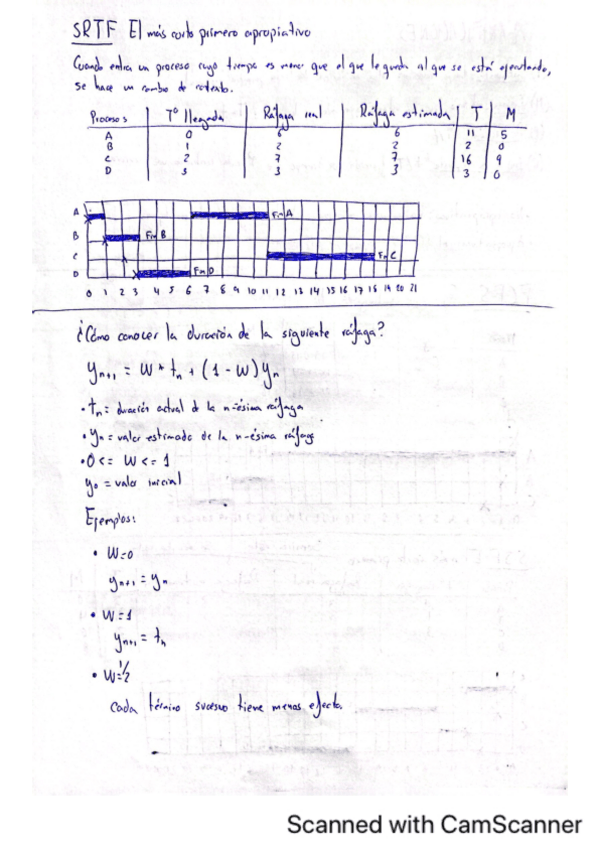 SRTF El más corto primero apropiativo
Cuando entra un proceso cuyo tiempo es menor que el que le queda al que se está ejecutando,
se hace un cambio de contexto.
Procesos Tº llegada Ráfaga real Ráfaga estimada T M
A 0 6 6 11 5
B 1 2 2 2 0
C 2 7 7 16 9
D 3 3 3 3 0
A Fin A
B Fin B
C Fin C
D Fin D
0 1 2 3 4 5 6 7 8 9 10 11 12 13 14 15 16 17 18 19 20 21
¿Cómo conocer la duración de la siguiente ráfaga?
yn+1 = W * tn + (1 - W) yn
• tn = duración actual de la n-ésima ráfaga
• yn = valor estimado de la n-ésima ráfaga
• 0 <= W <= 1
y0 = valor inicial
Ejemplos:
• W=0
yn+1 = yn
• W=1
yn+1 = tn
• W=1/2
Cada término sucesivo tiene menos efecto.
Scanned with CamScanner